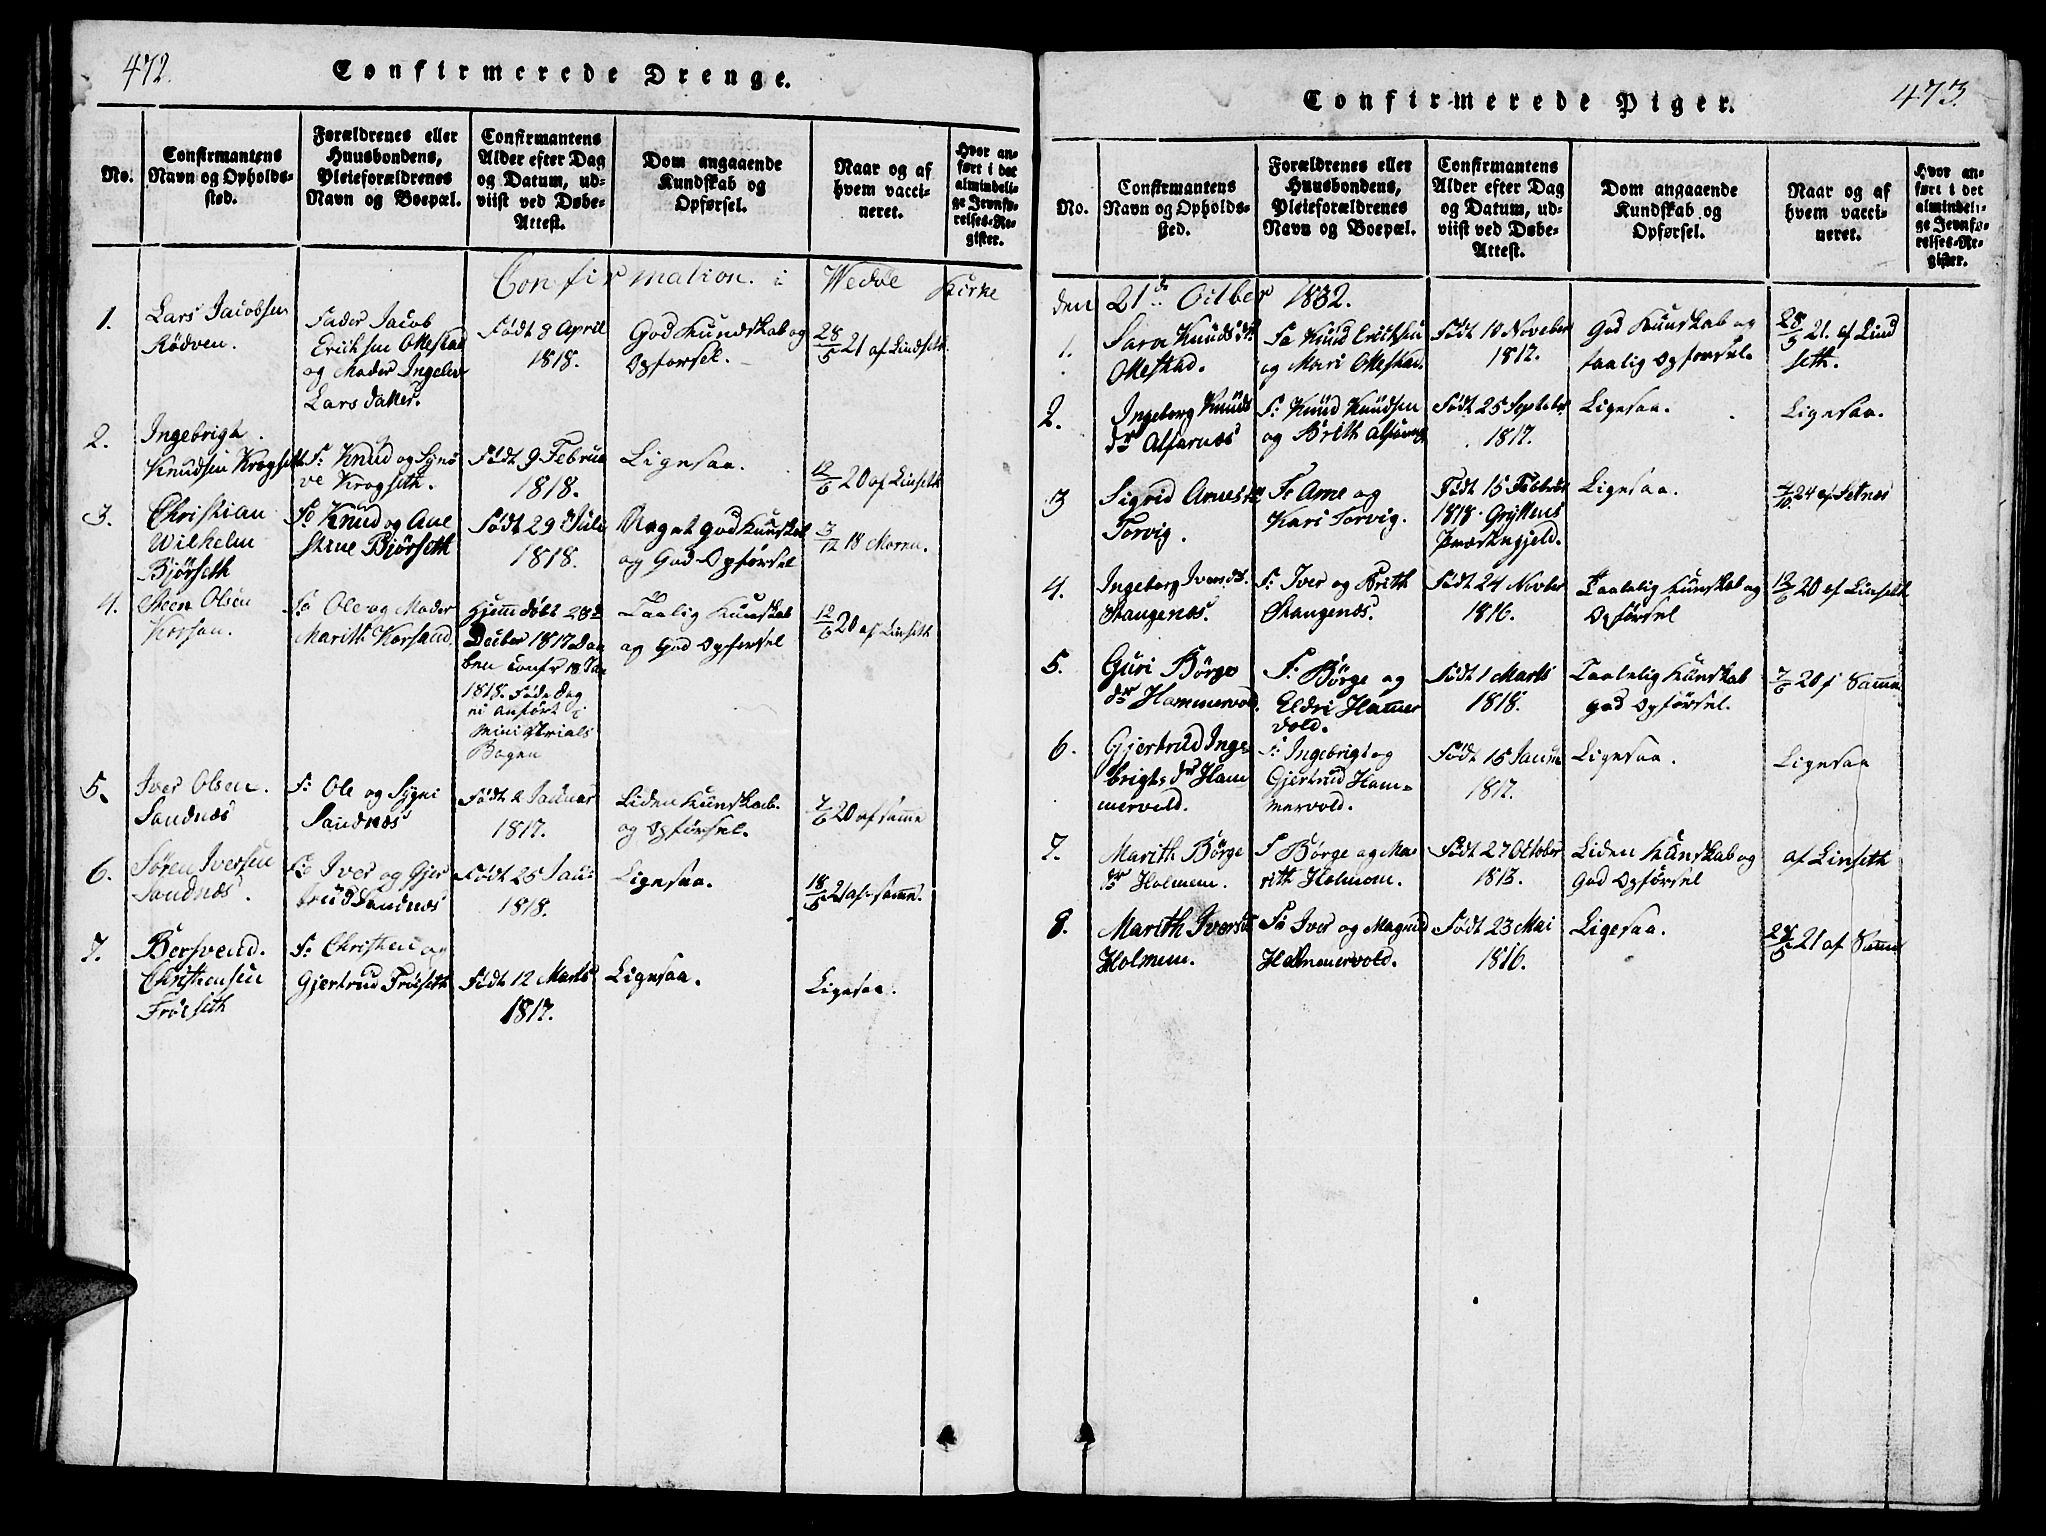 472.
Confirmerede Drenge.
No.
Confirmantens
Navn og Opholds-
sted.
Forældrenes eller
Huusbondens,
Pleieforældrenes
Navn og Boepæl.
Confirmantens
Alder efter Dag
og Datum, ud-
viist ved Døbe-
Attest.
Dom angaaende
Kundskab og
Opførsel.
Naar og af
hvem vacci-
neret.
Hvor an-
ført i det
almindeli-
ge Jevnfø-
relses-Re-
gister.
Confirmation i Wedøe Kirke
1.
Lars Jacobsen
Rödven.
Fader Jacob
Eriksen Okestad
og Moder Ingelev
Lars datter.
Födt 8 April
1818.
God Kundskab og
Opførsel.
28/5 21 af Lindseth
2.
Ingebrigt
Knudsen Krogseth
F: Knud og Synö
ve Krogseth.
Födt 9 Februa
1818.
Ligesaa.
12/6 20 af Linseth
3.
Christian
Wilhelm
Bjørseth
Fo Knud og Ane
Stine Bjørseth
Födt 29 Juli
1818.
Meget god Kunskab
og God Opförsel
3/12 18
4.
Steen Olsen
Korsan.
Fo Ole og Moder
Marith Korsand
Hjemdöbt 28de
Decbr 1817 Daa
ben confr 18 Jan
1818. Föde Dag
ei anfört i
Ministrials
Bogen
Taalig Kunskab
og God Opförsel
12/6 20 af Linseth
5.
Iver Olsen.
Sandnæs
F: Ole og Synei
Sandnæs
Födt 2 Januar
1817.
Liden Kunskab
og Opförsel.
7/6 20 af samme
6.
Sören Iversen
Sandnæs.
Fo Iver og Gjer
trud Sandnæs
Födt 25 Jan:
1818.
Ligesaa.
18/6 21 af samme.
7.
Bersvend.
Christensen
Fröiseth
F: Christen og
Gjertrud Fröiseth
Födt 12 Marts
1817.
Ligesaa.
Ligesaa.
473.
Confirmerede Piger.
No.
Confirmantens
Navn og Opholds-
sted.
Forældrenes eller
Huusbondens,
Pleieforældrenes
Navn og Boepæl.
Confirmantens
Alder efter Dag
og Datum, ud-
viist ved Døbe-
Attest.
Dom angaaende
Kundskab og
Opførsel.
Naar og af
hvem vacci-
neret.
Hvor an-
ført i det
almindeli-
ge Jevnfø-
relses-Re-
gister.
den 21de Octber 1832.
1.
Sara Knuds dr
Okestad.
Fa Knud Erichsen
og Mari Okestad.
Födt 10 Noveber
1817.
God Kunskab og
taalig Opförsel.
28/5 21. af Lind
seth.
2.
Ingeborg Knuds
dr Alfarnæs
F: Knud Knudsen
og Brith Alfarnæs
Födt 25 Septeber
1817.
Ligesaa.
Ligesaa.
3
Sigrid Arnesdr
Torvig.
F: Arne og
Kari Torvig.
Födt 15 Febbr
1818. Gryttens
Præstegjeld.
Ligesaa.
7/10 24 af Setnæs
4.
Ingeborg Iversdr.
Stangenæs.
F: Iver og Brith
Stangenæs.
Födt 24 Novber
1816.
Taalelig Kunskab og
Opförsel
12/6 20 af Linseth
5.
Guri Börge
dr Hammervold.
F: Börge og
Eldri Hammer
vold.
Födt 1 Marts
1818.
Taalelig Kunskab
god Opförsel.
7/6 20 f Samme
6.
Gjertrud Inge
brigts dr Ham
mervold.
F: Ingebrigt og
Gjertrud Ham=
mervold.
Födt 15 Janua
1817.
Ligesaa.
Ligesaa
7.
Marith Börge
dr Holmem.
F Börge og Ma
rith Holmem.
Födt 27 October
1813.
Liden Kunskab og
God Opförsel
af Linseth
8.
Marith Iversdr
Holmem.
Fo Iver og Magnild
Hammervold.
Födt 23 Mai
1816.
Ligesaa.
28/5 21 af Samme